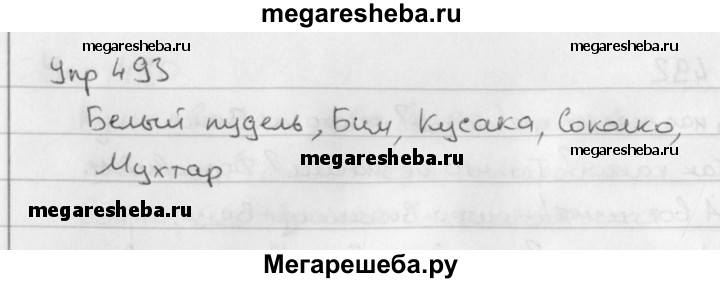 megaresheba.ru
megaresheba.ru
megaresheba.ru
Упр 493
Белый пудель, Бим, Кусака, Соколко,
megaresheba.ru
megaresheba.ru
Мухтар
megaresheba.ru
Мегарешеба.ру